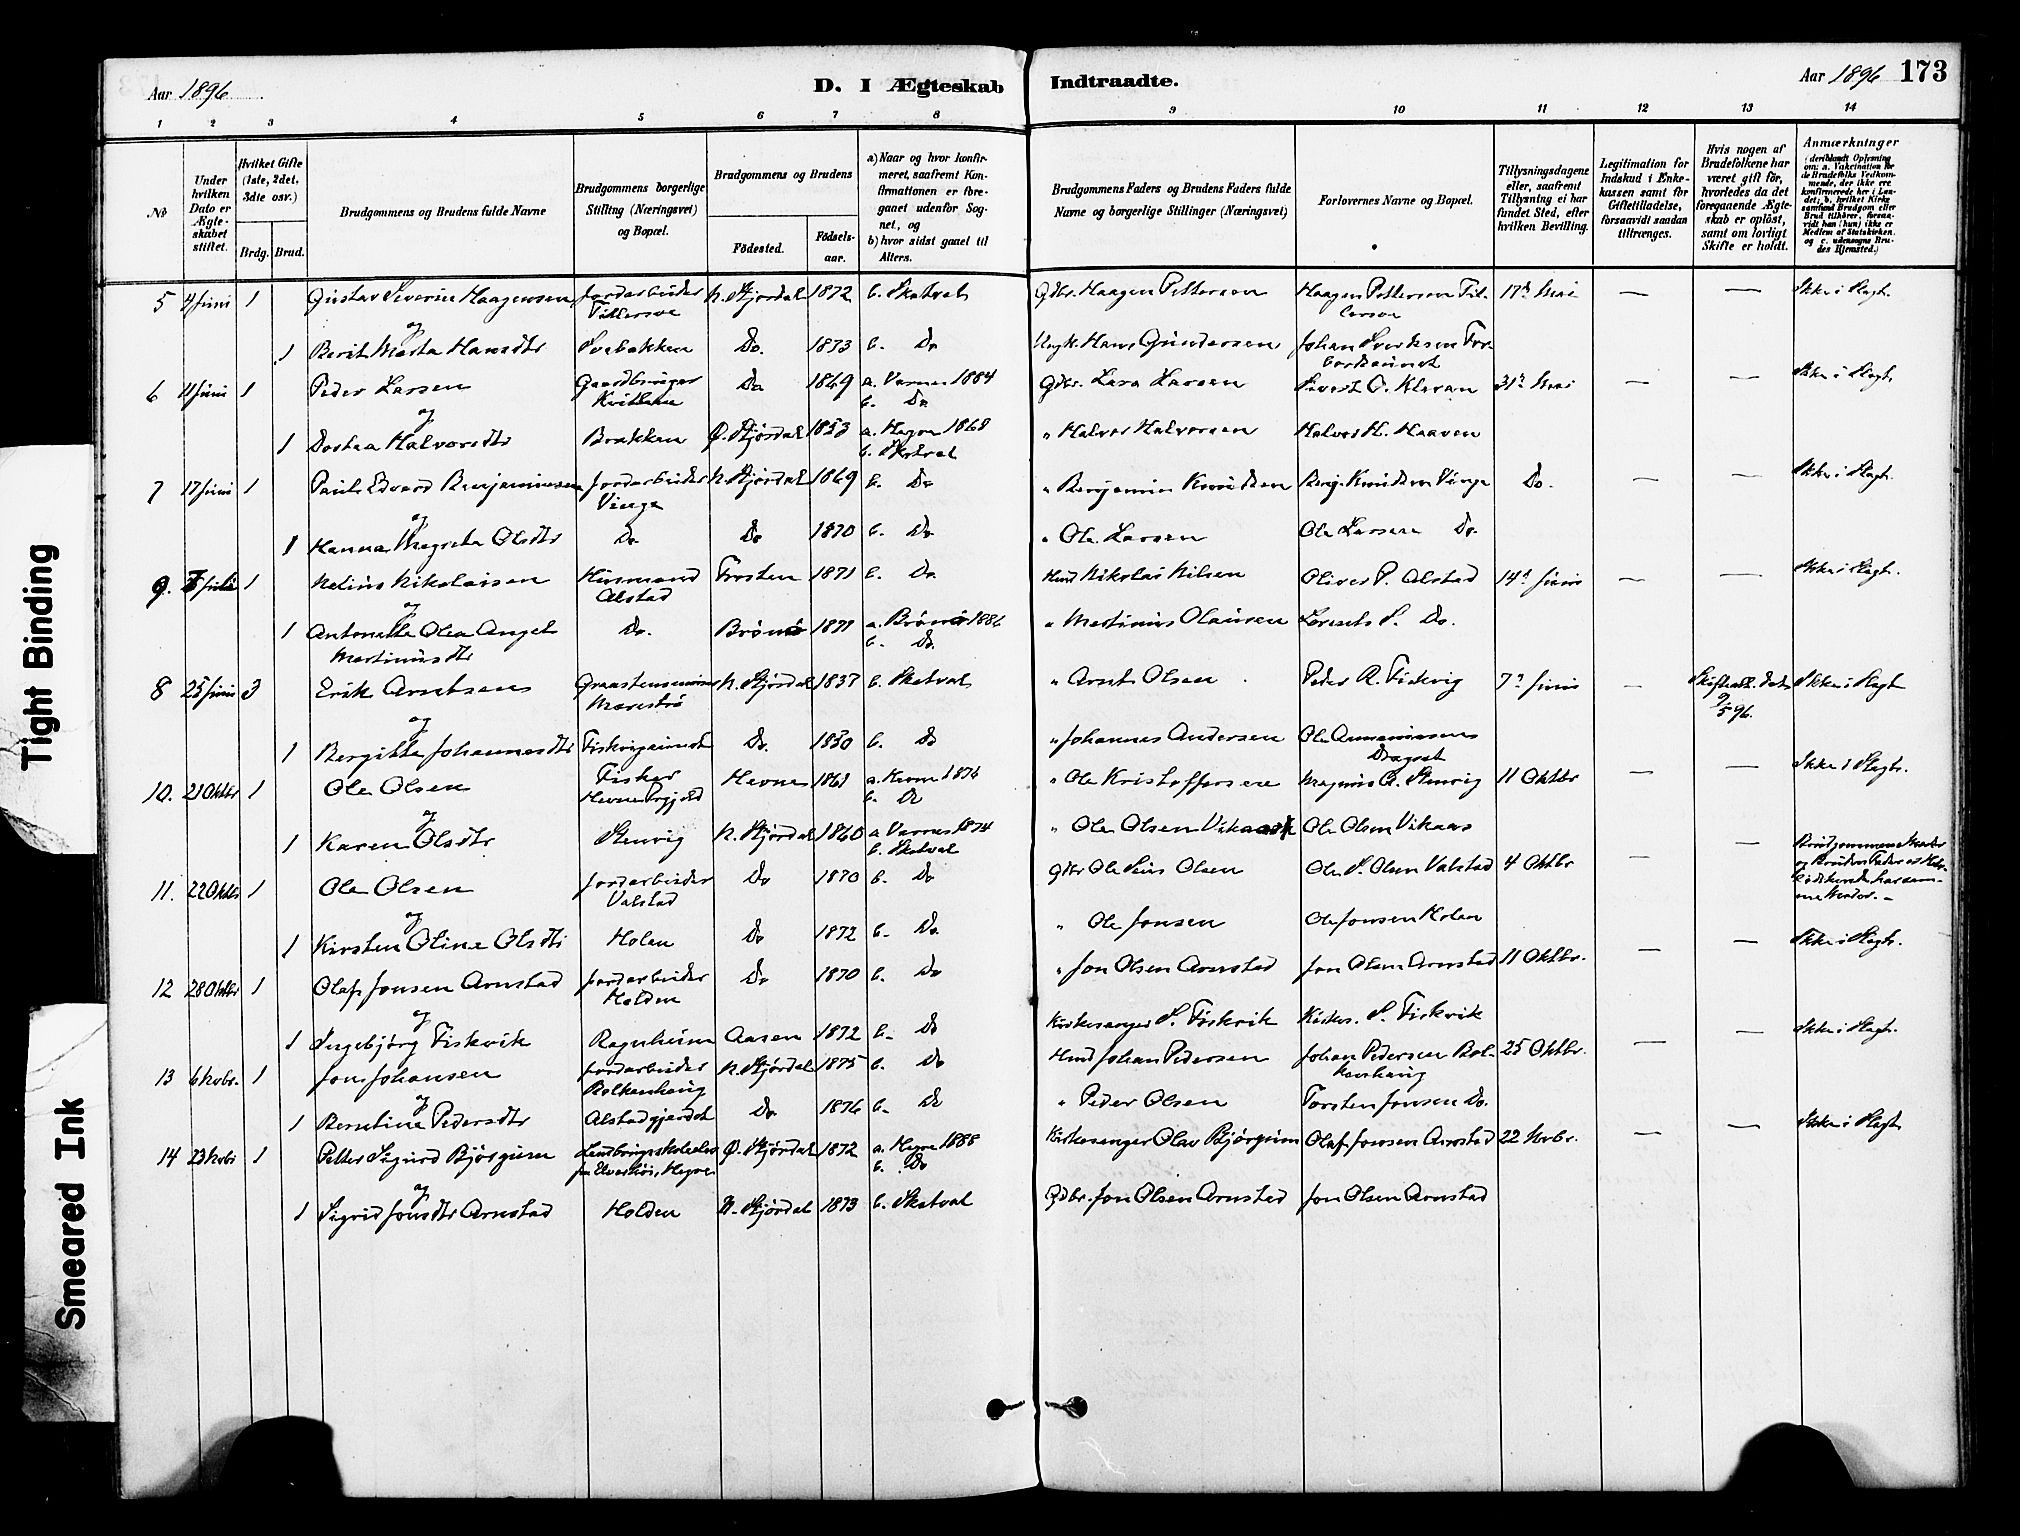 Aar 1896
D. I Ægteskab Indtraadte.
Aar 1896 173
1 2 3 4 5 6 7 8 9 10 11 12 13 14
No
Under hvilken Dato er Ægteskabet stiftet.
Hvilket Gifte (1ste, 2det, 3die osv.)
Brdg. Brud.
Brudgommens og Brudens fulde Navne
Brudgommens borgerlige Stilling (Næringsvei) og Bopæl.
Brudgommens og Brudens
Fødested. Fødselsaar.
a) Naar og hvor konfirmeret, saafremt Konfirmationen er foregaaet udenfor Sognet, og
b) hvor sidst gaaet til Alters.
Brudgommens Faders og Brudens Faders fulde Navne og borgerlige Stillinger (Næringsvei)
Forlovernes Navne og Bopæl.
Tillysningsdagene eller, saafremt Tillysning ei har fundet Sted, efter hvilken Bevilling.
Legitimation for Indskud i Enkekassen samt for Giftetilladelse, forsaavidt saadan tiltrænges.
Hvis nogen af Brudefolkene har været gift før, hvorledes da det foregaaende Ægteskab er opløst, samt om lovligt Skifte er holdt.
Anmærkninger
5 4 Juni 1 Gustav Severin Haagensen Jordarbeider N. Stjørdal 1872 b. Skatval Gdbr. Haagen Pettersen Haagen Pettersen 17de Mai — — Ikke i Slægt.
og
1 Berit Marta Hansdtr Svebakken Do. 1873 b. Do Hans Gundersen Johan
6 11 Juni 1 Peder Larsen Gaardbruger Do 1869 a. Værnes 1884 b. Do Gdbr. Lars Larsen Sivert O. Kleven 31te Mai — — Ikke i Slægt.
og
1 Halvorsdtr Brækken Ø. Stjørdal 1853 a. Hegre 1868 b. Skatval " Halvor Halvorsen Halvor H. Haaven
7 17 Juni 1 Paul Edvard Benjaminsen Jordarbeider Vinge N. Stjørdal 1869 b. Do " Benjamin Knudsen Benj. Knudsen Vinge Do. — — Ikke i Slægt.
og
1 Hanna Magreta Olsdtr Do. Do 1870 b. Do " Ole Larsen Ole Larsen Do.
9. Juli 1 Nelius Nikolaisen Husmand Alstad Frosten 1871 b. Do. Husm Nikolai Nilsen Oliver P. Alstad 14de Juni — — Ikke i Slægt.
og
1 Antonette Olea Angel Martinusdtr Do. Brønø 1871 a. Brønø 1886 b. Do. " Martinus Olausen Lorents P. Do.
8 25 Juni 3 Erik Arntsen N. Stjørdal 1837 b. Skatval " Arnt Olsen Peder A. Fiskvig 7de Juni — Ikke i Slægt
og
1 Bergitta Johannesdtr Do. 1850 b. Do " Johannes Andersen Ole
10. 21 Oktbr 1 Ole Olsen Fisker Hevne 1861 a. Hevne 1876 b. Do " Ole Kristoffersen Magnus O. Stenvig 11 Oktbr — — Ikke i Slægt.
og
1 Karen Olsdtr Stenvig N. Stjørdal 1860 a Værnes 1874 b. Skatval " Ole Olsen Vikaas Ole Olsen Vikaas
11. 22 Oktbr 1 Ole Olsen Jordarbeider Valstad Do 1870 b. Do Gdbr Ole Sius Olsen Ole S. Olsen Valstad 4 Oktbr — —
og
1 Kirsten Oline Olsdtr Holen Do 1872 b. Do. " Ole Jonsen Ole Jonsen Holen
12 28 Oktbr 1 Olaf Jonsen Arnstad Jordarbeider Holden Do 1870 b. Do " Jon Olsen Arnstad Jon Olsen Arnstad 11 Oktbr. — — Ikke i Slægt.
og
1 Ingebjørg Fiskvik Ragnheim Aasen 1872 b. Do Kirkesanger S. Fiskvik Kirkes. S. Fiskvik
13 6 Novbr. 1 Jon Johansen Jordarbeider N. Stjørdal 1875 b. Do Husm Johan Pedersen Johan Pedersen 25 Oktbr. — — Ikke i Slægt.
og
1 Berntine Pedersdtr Alstadgjerdet Do. 1876 b. Do " Peder Olsen Torsten Jonsen Do.
14 23 Novbr 1 Petter Sigurd Bjørgum Ø. Stjørdal 1872 a. Hegre 1888 b. Do Kirkesanger Olav Bjørgum Olaf Jonsen Arnstad 22 Novbr. — — Ikke i Slægt
og
1 Sigrid Jonsdtr Arnstad Holden N. Stjørdal 1873 b. Skatval Gdbr. Jon Olsen Arnstad Jon Olsen Arnstad
Tight Binding
Smeared Ink